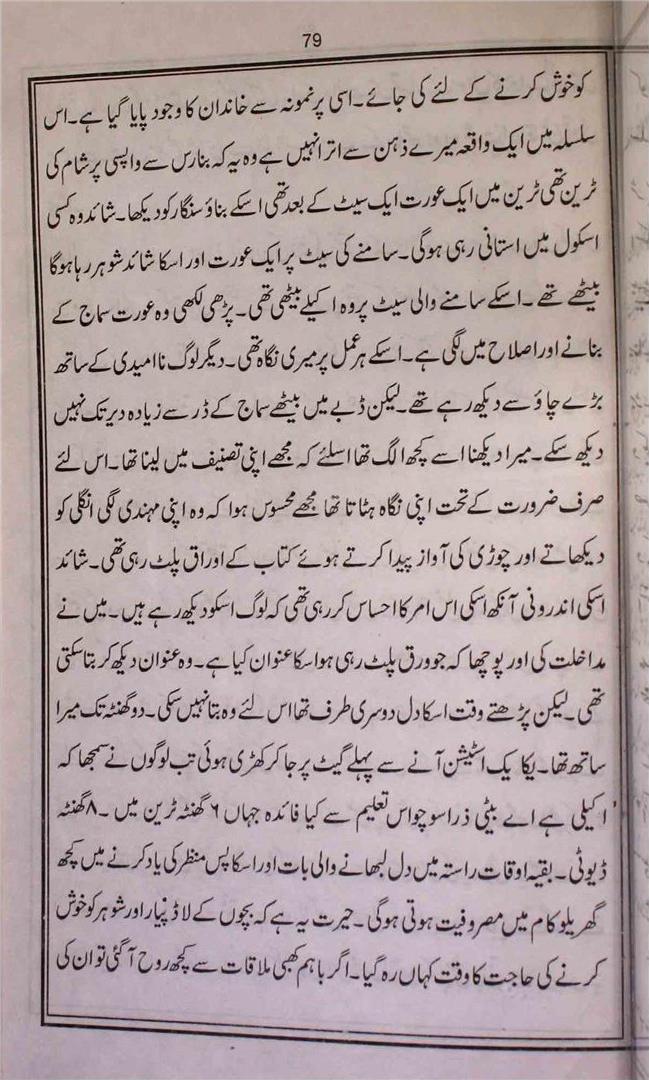 79
کو خوش کرنے کے لئے کی جائے۔ اسی پر نمونہ سے خاندان کا وجود پایا گیا ہے۔ اس
سلسلہ میں ایک واقعہ میرے ذہن سے اترا نہیں ہے وہ یہ کہ بنارس سے واپسی پر شام کی
ٹرین تھی ٹرین میں ایک عورت ایک سیٹ کے بعد تھی اسکے بناؤ سنگار کو دیکھا۔ شائد وہ کسی
اسکول میں استانی رہی ہوگی۔ سامنے کی سیٹ پر ایک عورت اور اسکا شائد شوہر رہا ہوگا
بیٹھے تھے۔ اسکے سامنے والی سیٹ پر وہ اکیلے بیٹھی تھی۔ پڑھی لکھی وہ عورت سماج کے
بنانے اور اصلاح میں لگی ہے۔ اسکے ہر عمل پر میری نگاہ تھی۔ دیگر لوگ نا امیدی کے ساتھ
بڑے چاؤ سے دیکھ رہے تھے۔ لیکن ڈبے میں بیٹھے سماج کے ڈر سے زیادہ دیر تک نہیں
دیکھ سکے۔ میرا دیکھنا اسے کچھ الگ تھا اسلئے کہ مجھے اپنی تصنیف میں لینا تھا۔ اس لئے
صرف ضرورت کے تحت اپنی نگاہ ہٹاتا تھا مجھے محسوس ہوا کہ وہ اپنی مہندی لگی انگلی کو
دیکھاتے اور چوڑی کی آواز پیدا کرتے ہوئے کتاب کے اوراق پلٹ رہی تھی۔ شائد
اسکی اندرونی آنکھ اسکی اس امر کا احساس کر رہی تھی کہ لوگ اسکو دیکھ رہے ہیں۔ میں نے
مداخلت کی اور پوچھا کہ جو ورق پلٹ رہی ہو اسکا عنوان کیا ہے۔ وہ عنوان دیکھ کر بتا سکتی
تھی۔ لیکن پڑھتے وقت اسکا دل دوسری طرف تھا اس لئے وہ بتا نہیں سکی۔ دو گھنٹہ تک میرا
ساتھ تھا۔ یکایک اسٹیشن آنے سے پہلے گیٹ پر جا کر کھڑی ہوئی تب لوگوں نے سمجھا کہ
اکیلی ہے اے بیٹی ذرا سوچو اس تعلیم سے کیا فائدہ جہاں ۶ گھنٹہ ٹرین میں۔ ۸ گھنٹہ
ڈیوٹی۔ بقیہ اوقات راستہ میں دل لبھانے والی بات اور اسکا پس منظر کی یاد کرنے میں کچھ
گھریلو کام میں مصروفیت ہوتی ہوگی۔ حیرت یہ ہے کہ بچوں کے لاڈ پیار اور شوہر کو خوش
کرنے کی حاجت کا وقت کہاں رہ گیا۔ اگر باہم کبھی ملاقات سے کچھ روح آ گئی تو ان کی